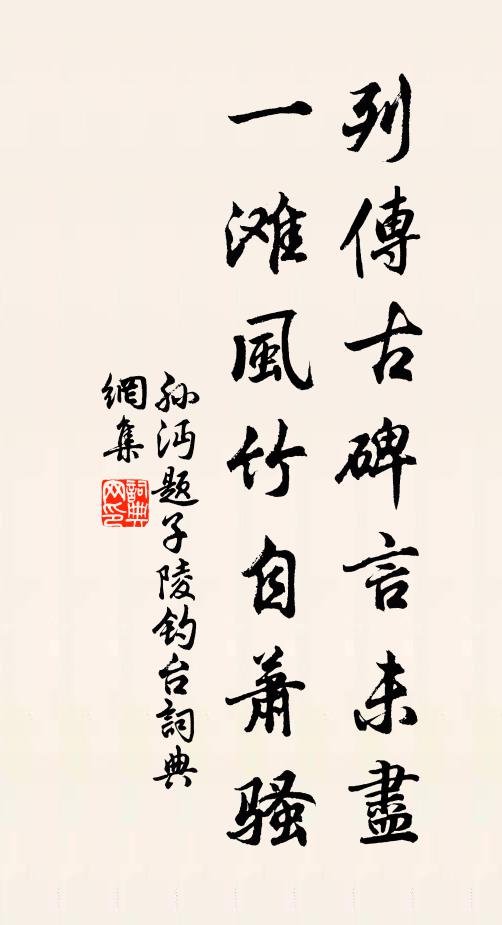 列傳古碑言未盡
一滩風竹自蕭骚
孙沔题子陵钓台詞典
網集
詞典
网印